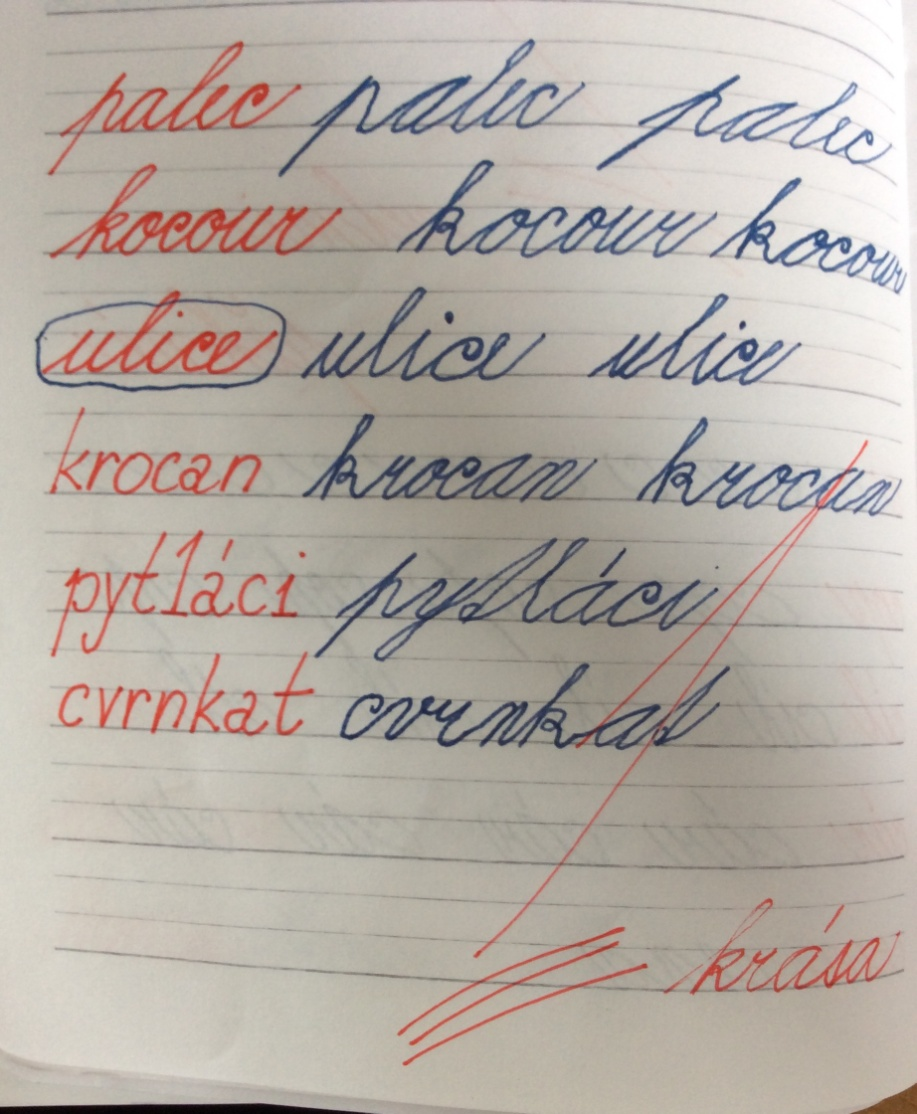 palec palec palec
kocour kocour kocour
ulice ulice ulice
krocan krocan krocan
pytláci pytláci
cvrnkat cvrnkat
krása